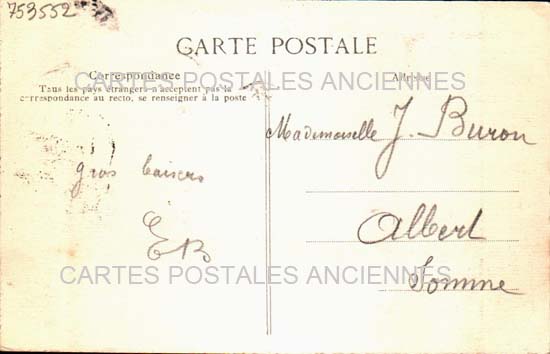 753552
CARTE POSTALE
Correspondance
Tous les pays étrangers n'acceptent pas la
correspondance au recto, se renseigner à la poste
CARTES POSTALES ANCIENNES
Adresse
Mademoiselle J. Buron
gros baisers
EB
Albert
Somme
CARTES POSTALES ANCIENNES